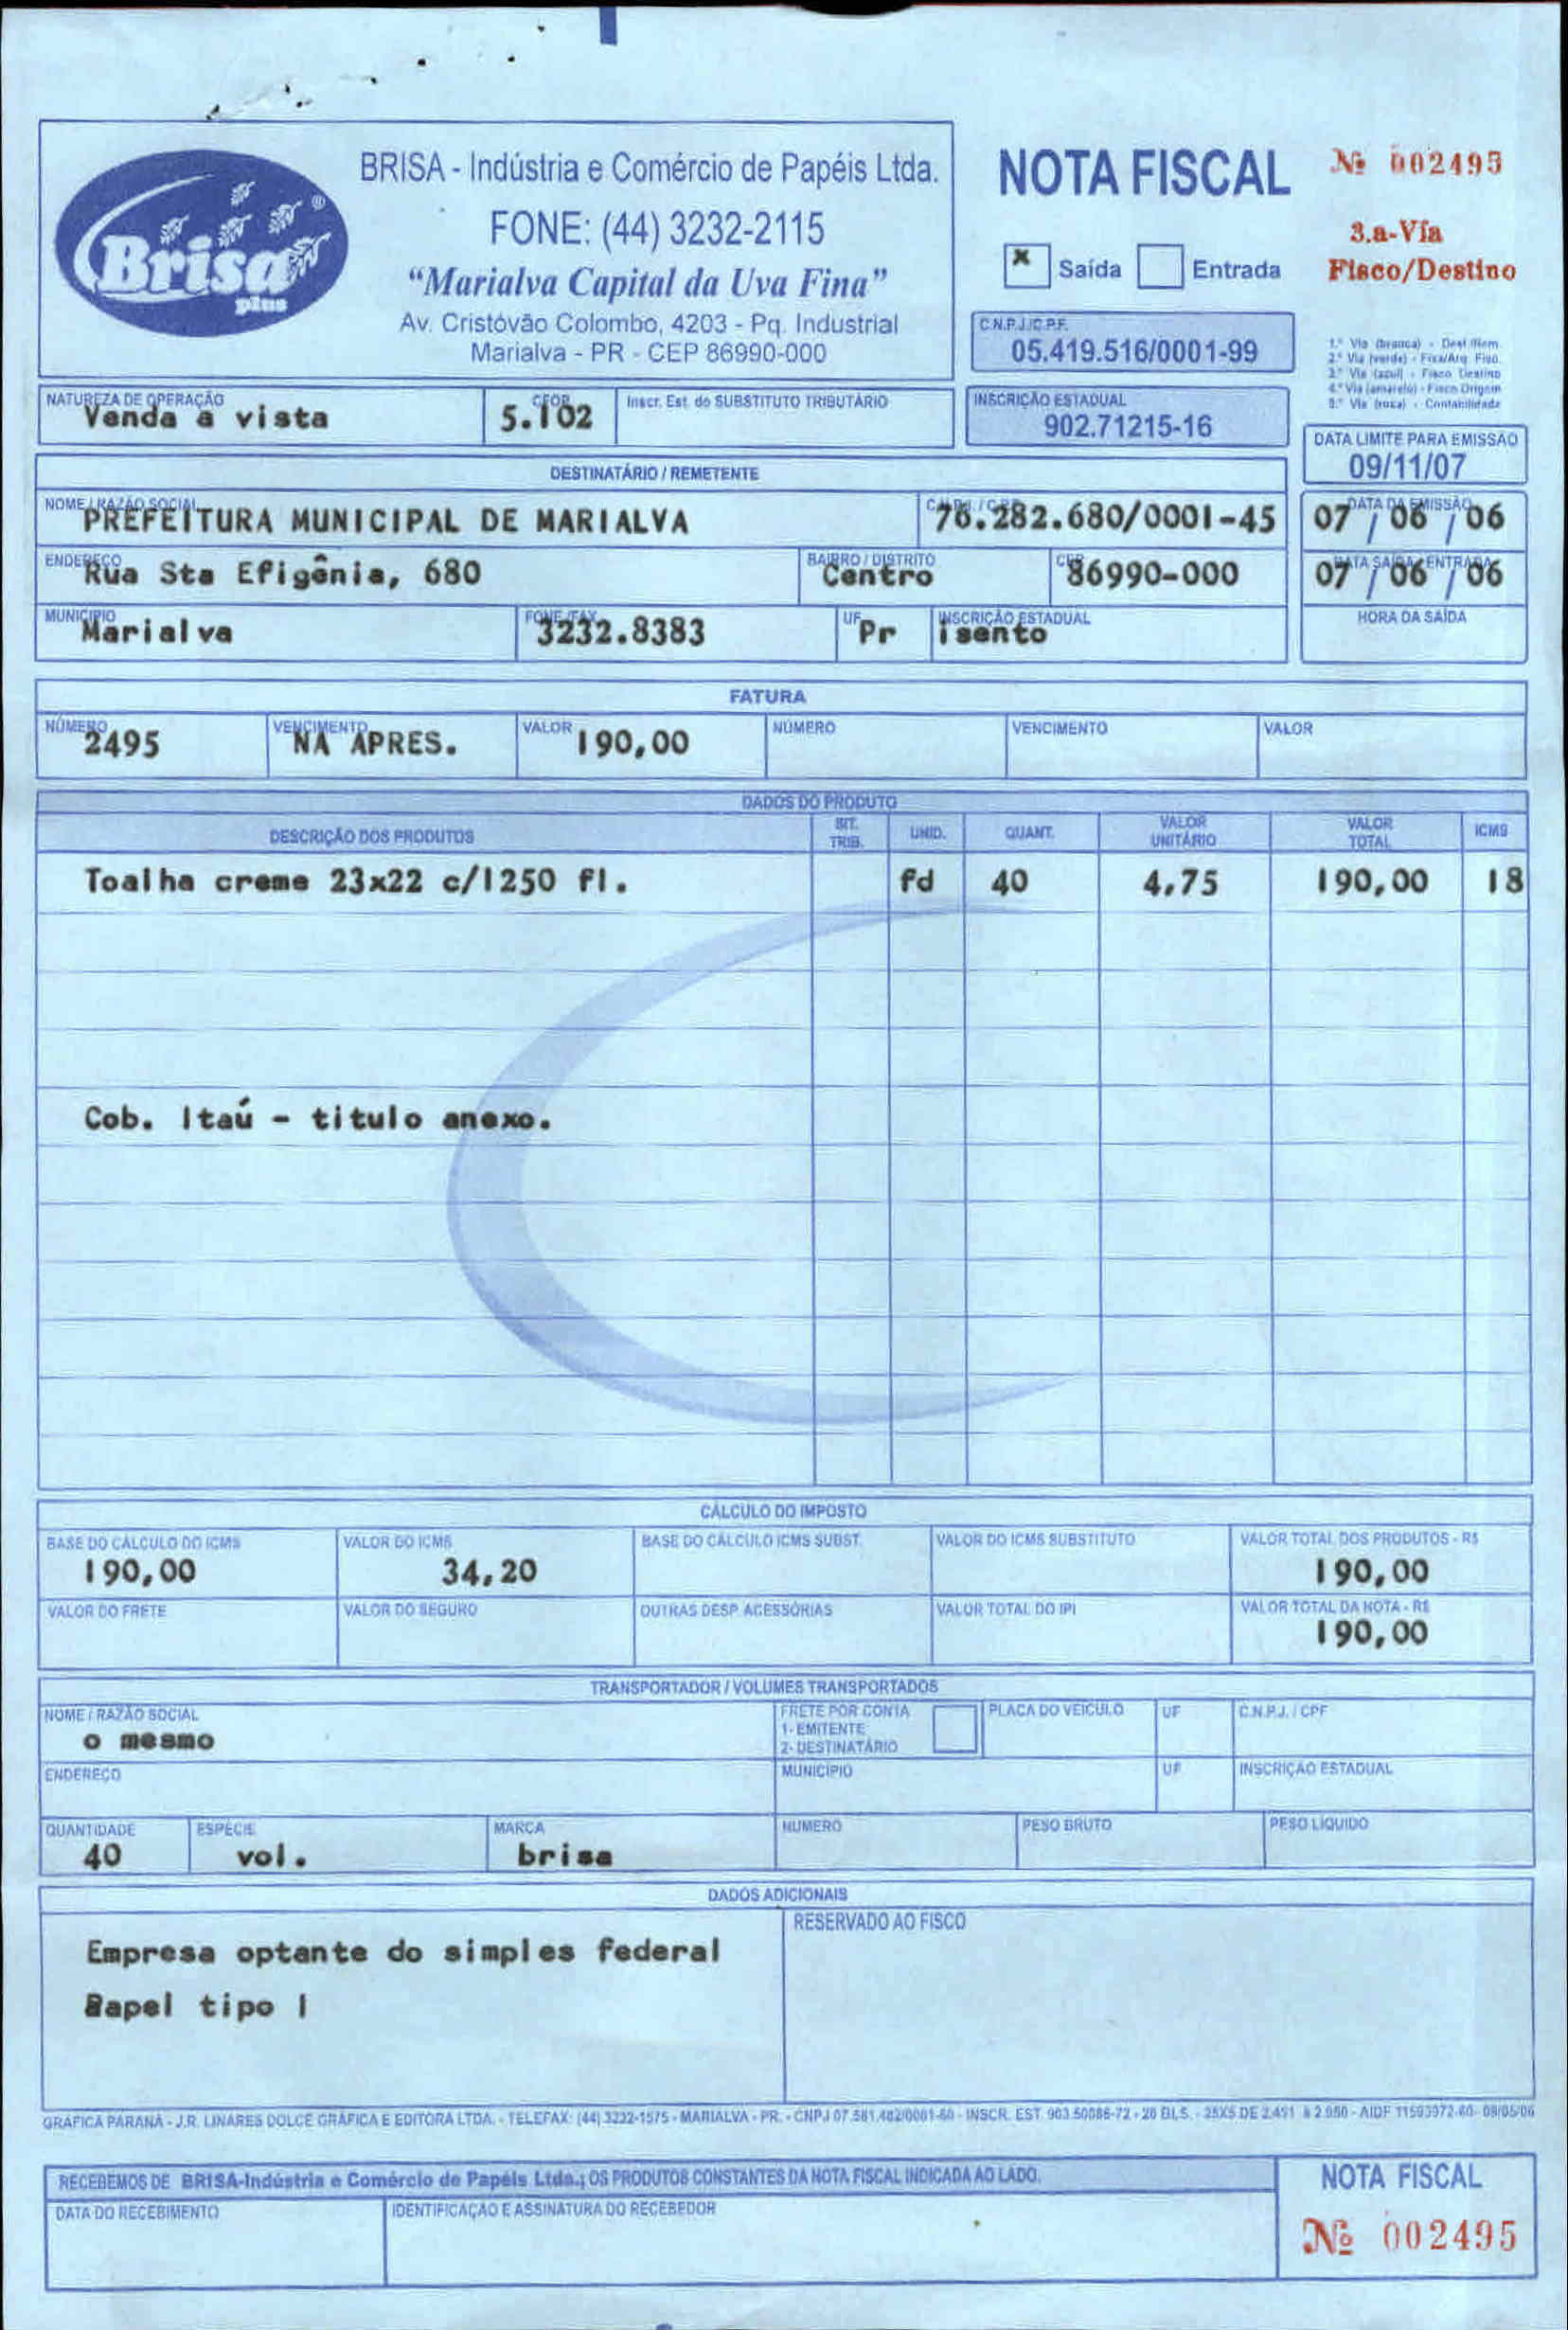 BRISA - Indústria e Comércio de Papéis Ltda.
FONE: (44) 3232-2115
"Marialva Capital da Uva Fina"
Av. Cristóvão Colombo, 4203 - Pq. Industrial
Marialva - PR - CEP 86990-000
Brisa ®
plus
NOTA FISCAL
Nº 002495
x Saída Entrada
3.a-Vía
Fisco/Destino
C.N.P.J./C.P.F.
05.419.516/0001-99
NATUREZA DE OPERAÇÃO CFOP Inscr. Est. do SUBSTITUTO TRIBUTÁRIO
Venda a vista 5.102
INSCRIÇÃO ESTADUAL
902.71215-16
DATA LIMITE PARA EMISSÃO
09/11/07
DESTINATÁRIO / REMETENTE
NOME / RAZÃO SOCIAL C.N.P.J. / C.P.F. DATA DA EMISSÃO
PREFEITURA MUNICIPAL DE MARIALVA 76.282.680/0001-45 07 / 06 / 06
ENDEREÇO BAIRRO / DISTRITO CEP DATA SAÍDA / ENTRADA
Rua Sta Efigênia, 680 Centro 86990-000 07 / 06 / 06
MUNICÍPIO FONE /FAX UF INSCRIÇÃO ESTADUAL HORA DA SAÍDA
Marialva 3232.8383 Pr isento
FATURA
NÚMERO VENCIMENTO VALOR NÚMERO VENCIMENTO VALOR
2495 NA APRES. 190,00
DADOS DO PRODUTO
DESCRIÇÃO DOS PRODUTOS SIT. TRIB. UNID. QUANT. VALOR UNITÁRIO VALOR TOTAL ICMS
Toalha creme 23x22 c/1250 fl. fd 40 4,75 190,00 18
Cob. Itaú - titulo anexo.
CÁLCULO DO IMPOSTO
BASE DO CÁLCULO DO ICMS VALOR DO ICMS BASE DO CÁLCULO ICMS SUBST. VALOR DO ICMS SUBSTITUTO VALOR TOTAL DOS PRODUTOS - R$
190,00 34,20 190,00
VALOR DO FRETE VALOR DO SEGURO OUTRAS DESP. ACESSÓRIAS VALOR TOTAL DO IPI VALOR TOTAL DA NOTA - R$
190,00
TRANSPORTADOR / VOLUMES TRANSPORTADOS
NOME / RAZÃO SOCIAL FRETE POR CONTA PLACA DO VEÍCULO UF C.N.P.J. / CPF
1- EMITENTE
o mesmo 2- DESTINATÁRIO
ENDEREÇO MUNICÍPIO UF INSCRIÇÃO ESTADUAL
QUANTIDADE ESPÉCIE MARCA NÚMERO PESO BRUTO PESO LÍQUIDO
40 vol. brisa
DADOS ADICIONAIS
RESERVADO AO FISCO
Empresa optante do simples federal
Papel tipo I
GRÁFICA PARANÁ - J.R. LINARES DOLCE GRÁFICA E EDITORA LTDA. - TELEFAX: (44) 3232-1575 - MARIALVA - PR. - CNPJ
RECEBEMOS DE BRISA-Indústria e Comércio de Papéis Ltda.; OS PRODUTOS CONSTANTES DA NOTA FISCAL INDICADA AO LADO.
DATA DO RECEBIMENTO IDENTIFICAÇÃO E ASSINATURA DO RECEBEDOR
NOTA FISCAL
Nº 002495